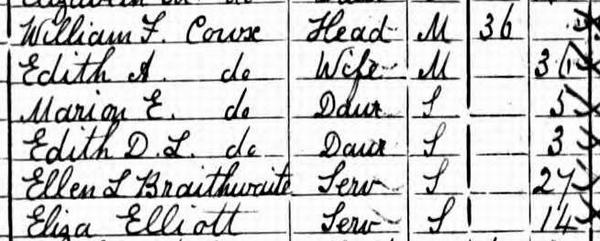 William F. Cowse Head M 36
Edith A. do Wife M 31
Marion E. do Daur S 5
Edith D. L. do Daur S 3
Ellen L Braithwaite Serv S 27
Eliza Elliott Serv S 14